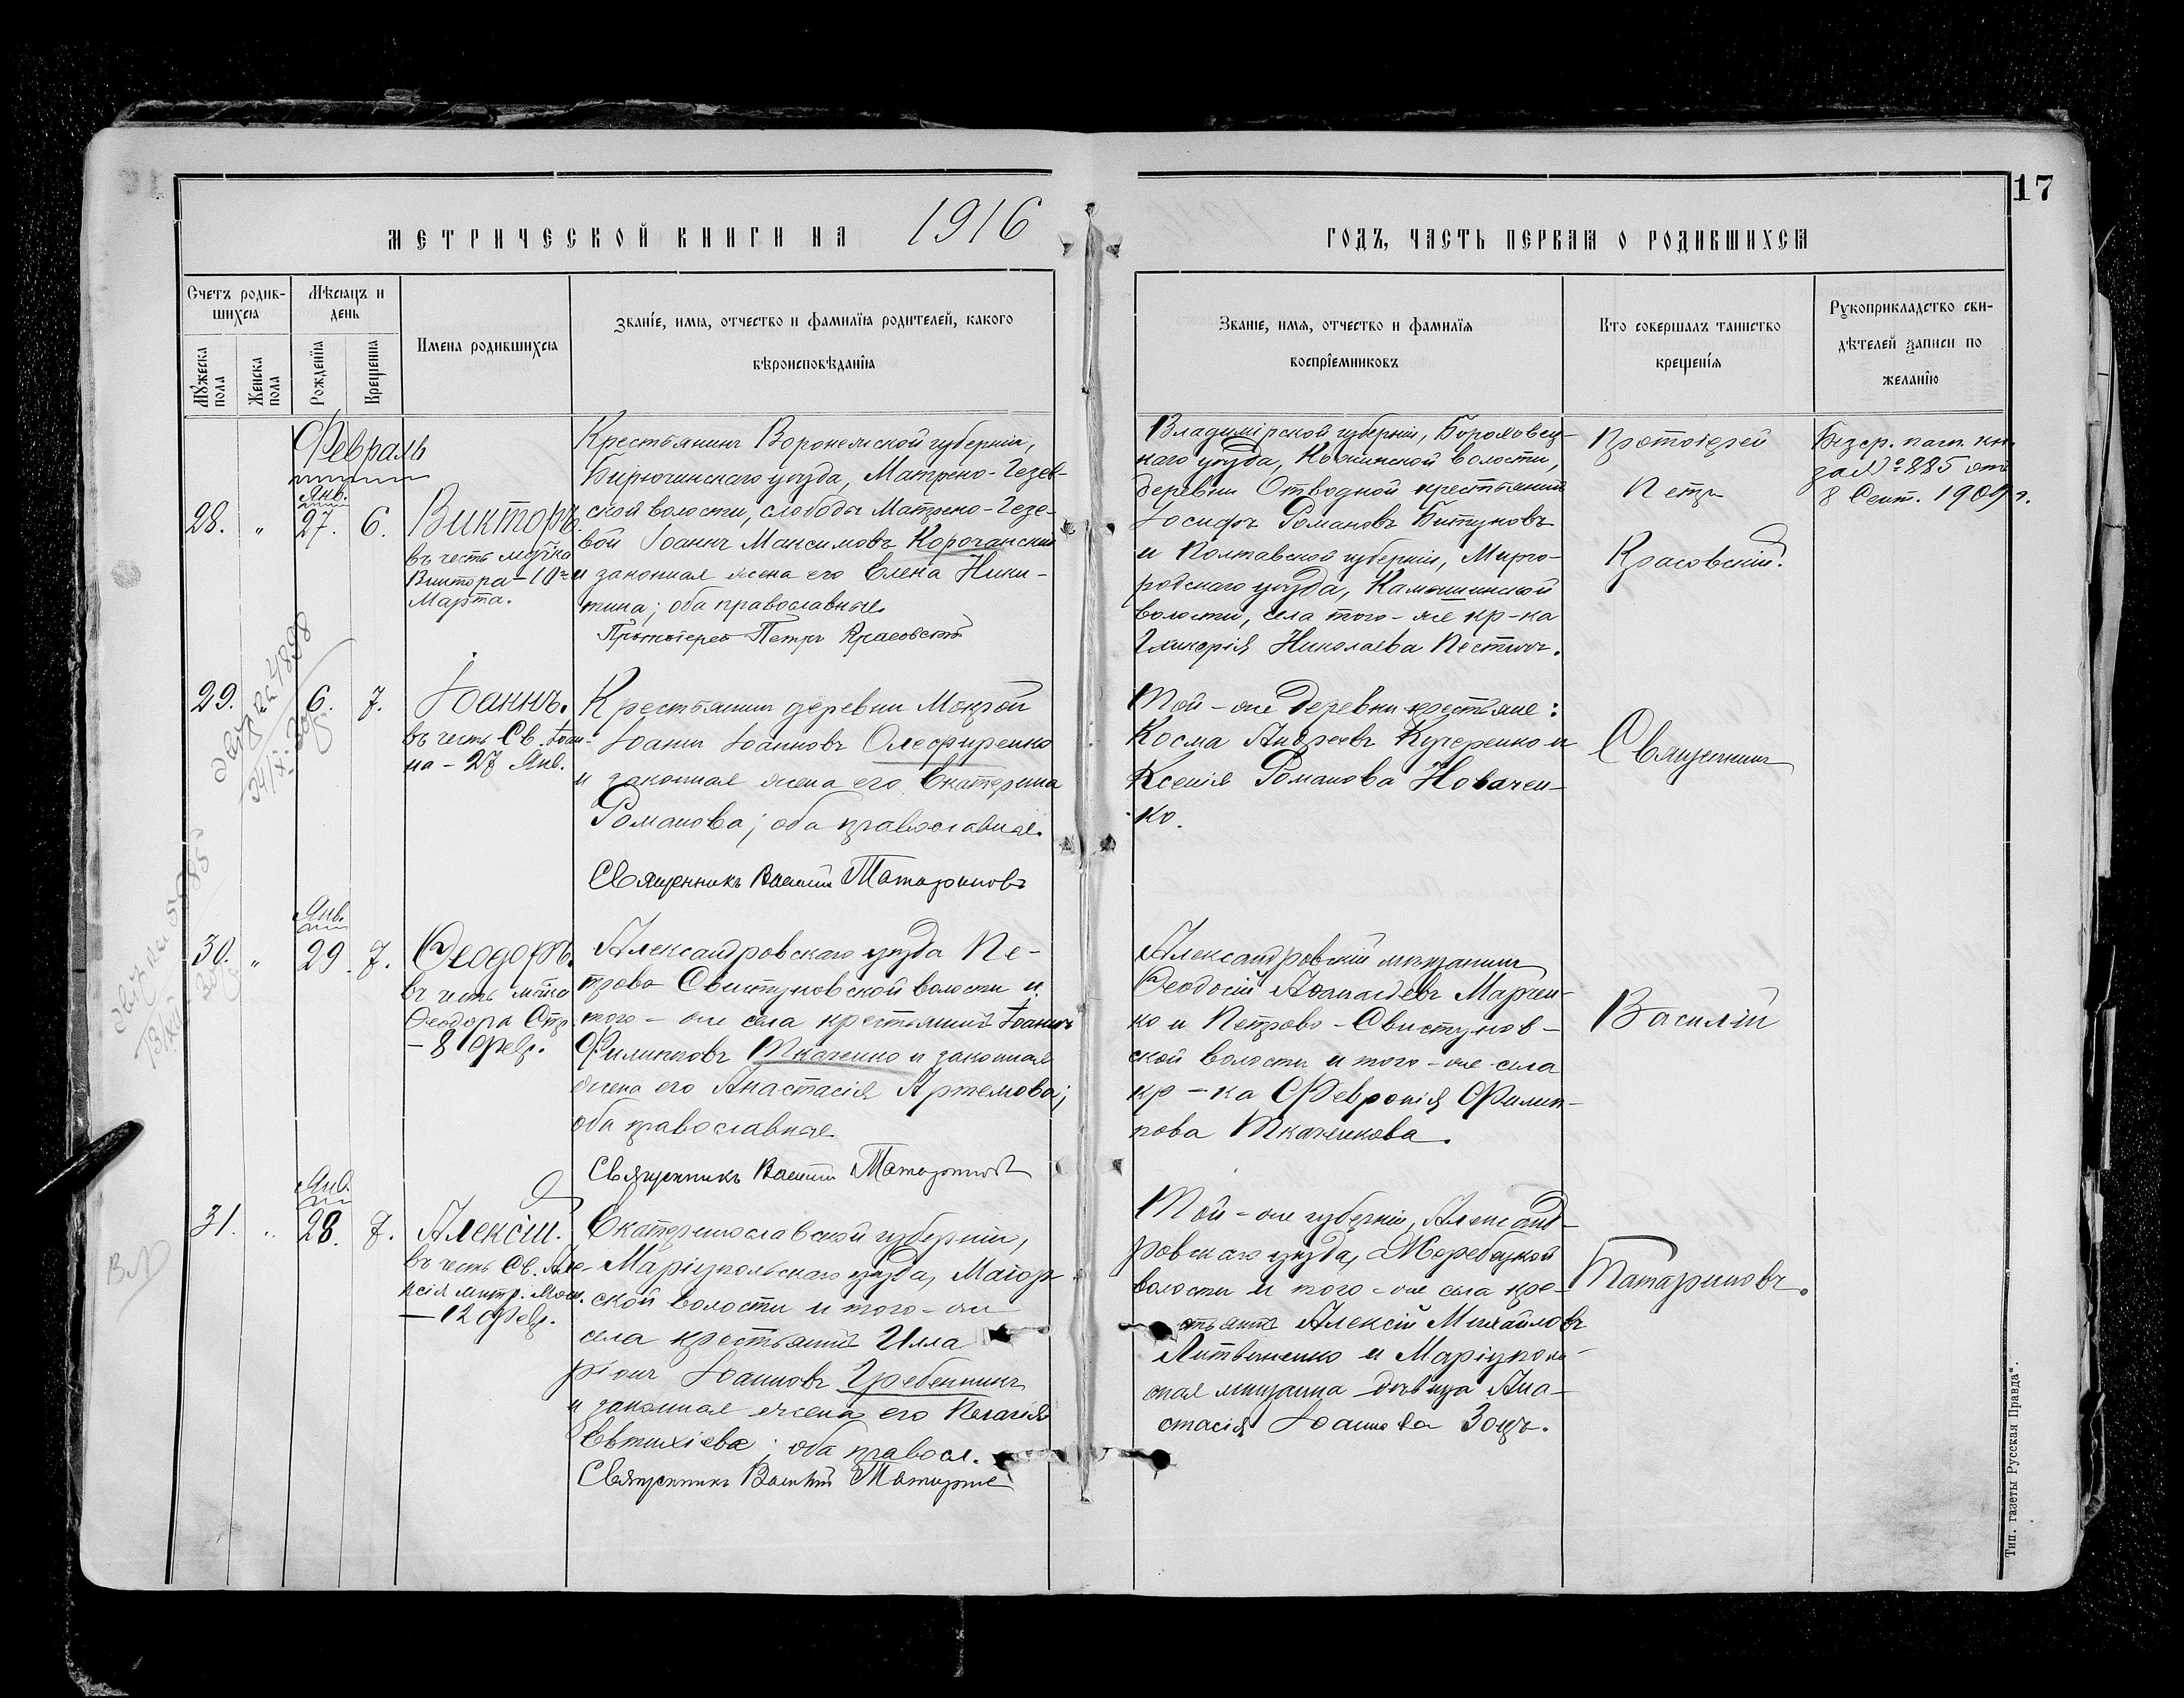 17
МЕТРИЧЕСКОЙ КНИГИ НА 1916
ГОДЪ, ЧАСТЬ ПЕРВАЯ О РОДИВШИХСЯ
Счетъ родив-
шихся
Мѣсяцъ и
день
Мужеска
пола
Женска
пола
Рожденія
Крещенія
Имена родившихся
Званіе, имя, отчество и фамилія родителей, какого
вѣроисповѣданія
Званіе, имя, отчество и фамилія
воспріемниковъ
Кто совершалъ таинство
крещенія
Рукоприкладство сви-
дѣтелей записи по
желанію
Февраль
Янв.
28. „ 27. 6.
Викторъ.
въ честь мч̃ка
Виктора – 10го
Марта.
Крестьянинъ Воронежской губерніи,
Бирюченскаго уѣзда, Матрено-Гезев-
ской волости, слободы Матрено-Гезе-
вой Іоаннъ Максимовъ Корочанскій
и законная жена его Елена Ники-
тина; оба православные.
Протоіерей Петръ Красовскій
Владимірской губерніи,
наго уѣзда, волости,
деревни Отводной крестьянинъ
Іосифъ Романовъ Битуновъ
и Полтавской губерніи, Мирго-
родскаго уѣзда, Камышинской
волости, села того-же кр-ка
Гликерія Николаева
Протоіерей
Петръ
Красовскій.
Безср. пасп. кн.
за № 885 отъ
8 Сент. 1909 г.
29. 6. 7.
Іоаннъ.
въ честь Св. Іоан-
на – 27 Янв.
Крестьянинъ деревни Мокрой
Іоаннъ Іоанновъ Олефиренко
и законная жена его Екатерина
Романова; оба православные.
Священникъ Василій Татариновъ
Той-же деревни крестьяне:
Косма Андреевъ Кучеренко и
Ксенія Романова Новачен-
ко.
Священникъ
Янв.
30. „ 29. 7.
Ѳеодоръ.
въ честь мч̃ка
Ѳеодора Стр.
– 8 Февр.
Александровскаго уѣзда Пе-
трово Свистуновской волости и
того-же села крестьянинъ Іоаннъ
Филипповъ Ткаченко и законная
жена его Анастасія Артемова;
оба православные.
Священникъ Василій Татариновъ
Александровскій мѣщанинъ
Ѳеодосій Марчен-
ко и Петрово-Свистунов-
ской волости и того-же села
кр-ка Февронія Филип-
пова Ткаченкова.
Василій
Янв.
31. „ 28. 7.
Алексій.
въ честь Св. Але-
ксія митр. Мос.
– 12 Февр.
Екатеринославской губерніи,
Маріупольскаго уѣзда, Маіор-
ской волости и того-же
села крестьянинъ Илла-
ріонъ Іоанновъ Гребенникъ
и законная жена его Пелагія
Евтихіева; оба правосл.
Священникъ Василій Татариновъ
Той-же губерніи, Александ-
ровскаго уѣзда, Жеребецкой
волости и того-же села кре-
стьянинъ Алексій Михайловъ
Литвиненко и Маріуполь-
ская мѣщанка дѣвица Ана-
стасія Іоаннова Зоцъ.
Татариновъ.
Тип. газеты „Русская Правда“.